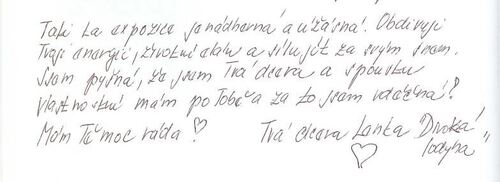 Tati ta expozice je nádherná a úžásná! Obdivuji
Tvoji energii, životní elán a sílu jít za svým snem.
Jsem pyšná, že jsem Tvá dcera a spoustu
vlastností mám po Tobě a za to jsem vděčná!
Mám Tě moc ráda! Tvá dcera Lenka "Divoká
lodyha"